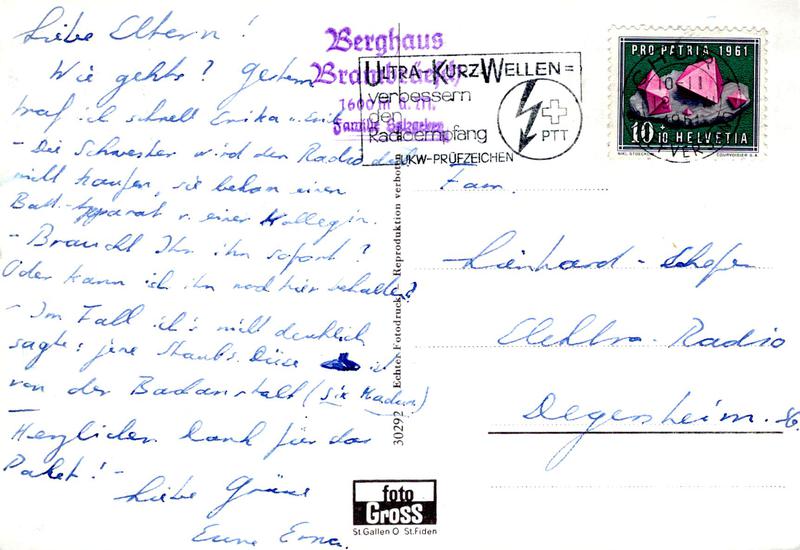 Liebe Eltern!
Wie gehts? Gestern
traf ich schnell Erika u. Erik
- Die Schwester wird den Radio doch
nicht kaufen, sie bekam einen
Batt.-Apparat v. einer Kollegin.
- Braucht Ihr ihn sofort?
Oder kann ich ihn noch hier behalten?
- Im Fall ich's nicht deutlich
sagte: jene Staubs. Düse ist
von der Badanstalt (Six Madun)
Herzlichen Dank für das
Paket! -
Liebe Grüsse
Eure Erna.
Berghaus
Brambrüesch
1600 m ü. M.
Familie
ULTRA-KURZWELLEN =
verbessern
den
Radioempfang
UKW-PRÜFZEICHEN
PTT
PRO PATRIA 1961
10+10 HELVETIA
COURVOISIER S.A.
10-11
30292 - Echter Fotodruck - Reproduktion verboten
Fam.
Lienhard - Schefer
Elektro-Radio
Degersheim.
foto
Gross
St.Gallen O St.Fiden